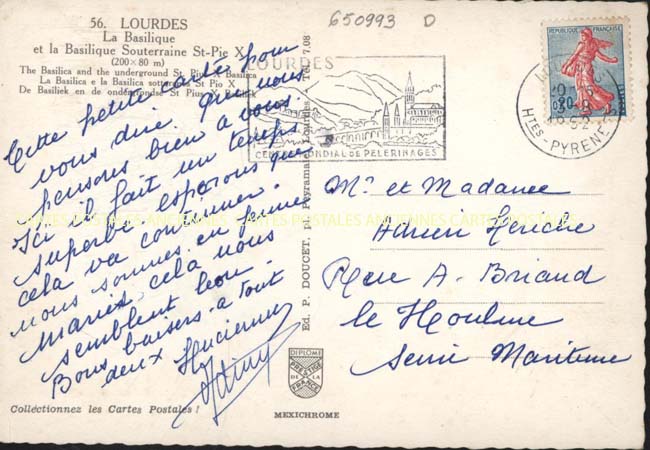 56. LOURDES
La Basilique
et la Basilique Souterraine St-Pie X
(200×80 m)
The Basilica and the underground St Pius X Basilica
La Basilica e la Basilica sotterranea St Pio X
De Basiliek en de onderaardse St Pius X
650993 D
Cette petite carte pour
vous dire que nous
pensons bien à vous
Ici il fait un temps
superbe esperons que
cela va continuer.
nous sommes en
Mariés cela nous
semblent bon.
Bons baisers à tout
deux Lucienne
Collectionnez les Cartes Postales !
LOURDES
CENTRE MONDIAL DE PELERINAGES
Ed. P. DOUCET, pl. Peyramale, Lourdes. T 7.08
DIPLOME
PRESTIGE
DE LA
FRANCE
MEXICHROME
REPUBLIQUE FRANÇAISE
0,20
POSTES
LOURDES
HTES-PYRENEES
Mr et Madame
Adrien
Rue A. Briand
le Houlme
Seine Maritime
CARTES POSTALES ANCIENNES CARTES POSTALES ANCIENNES CARTES POSTALES